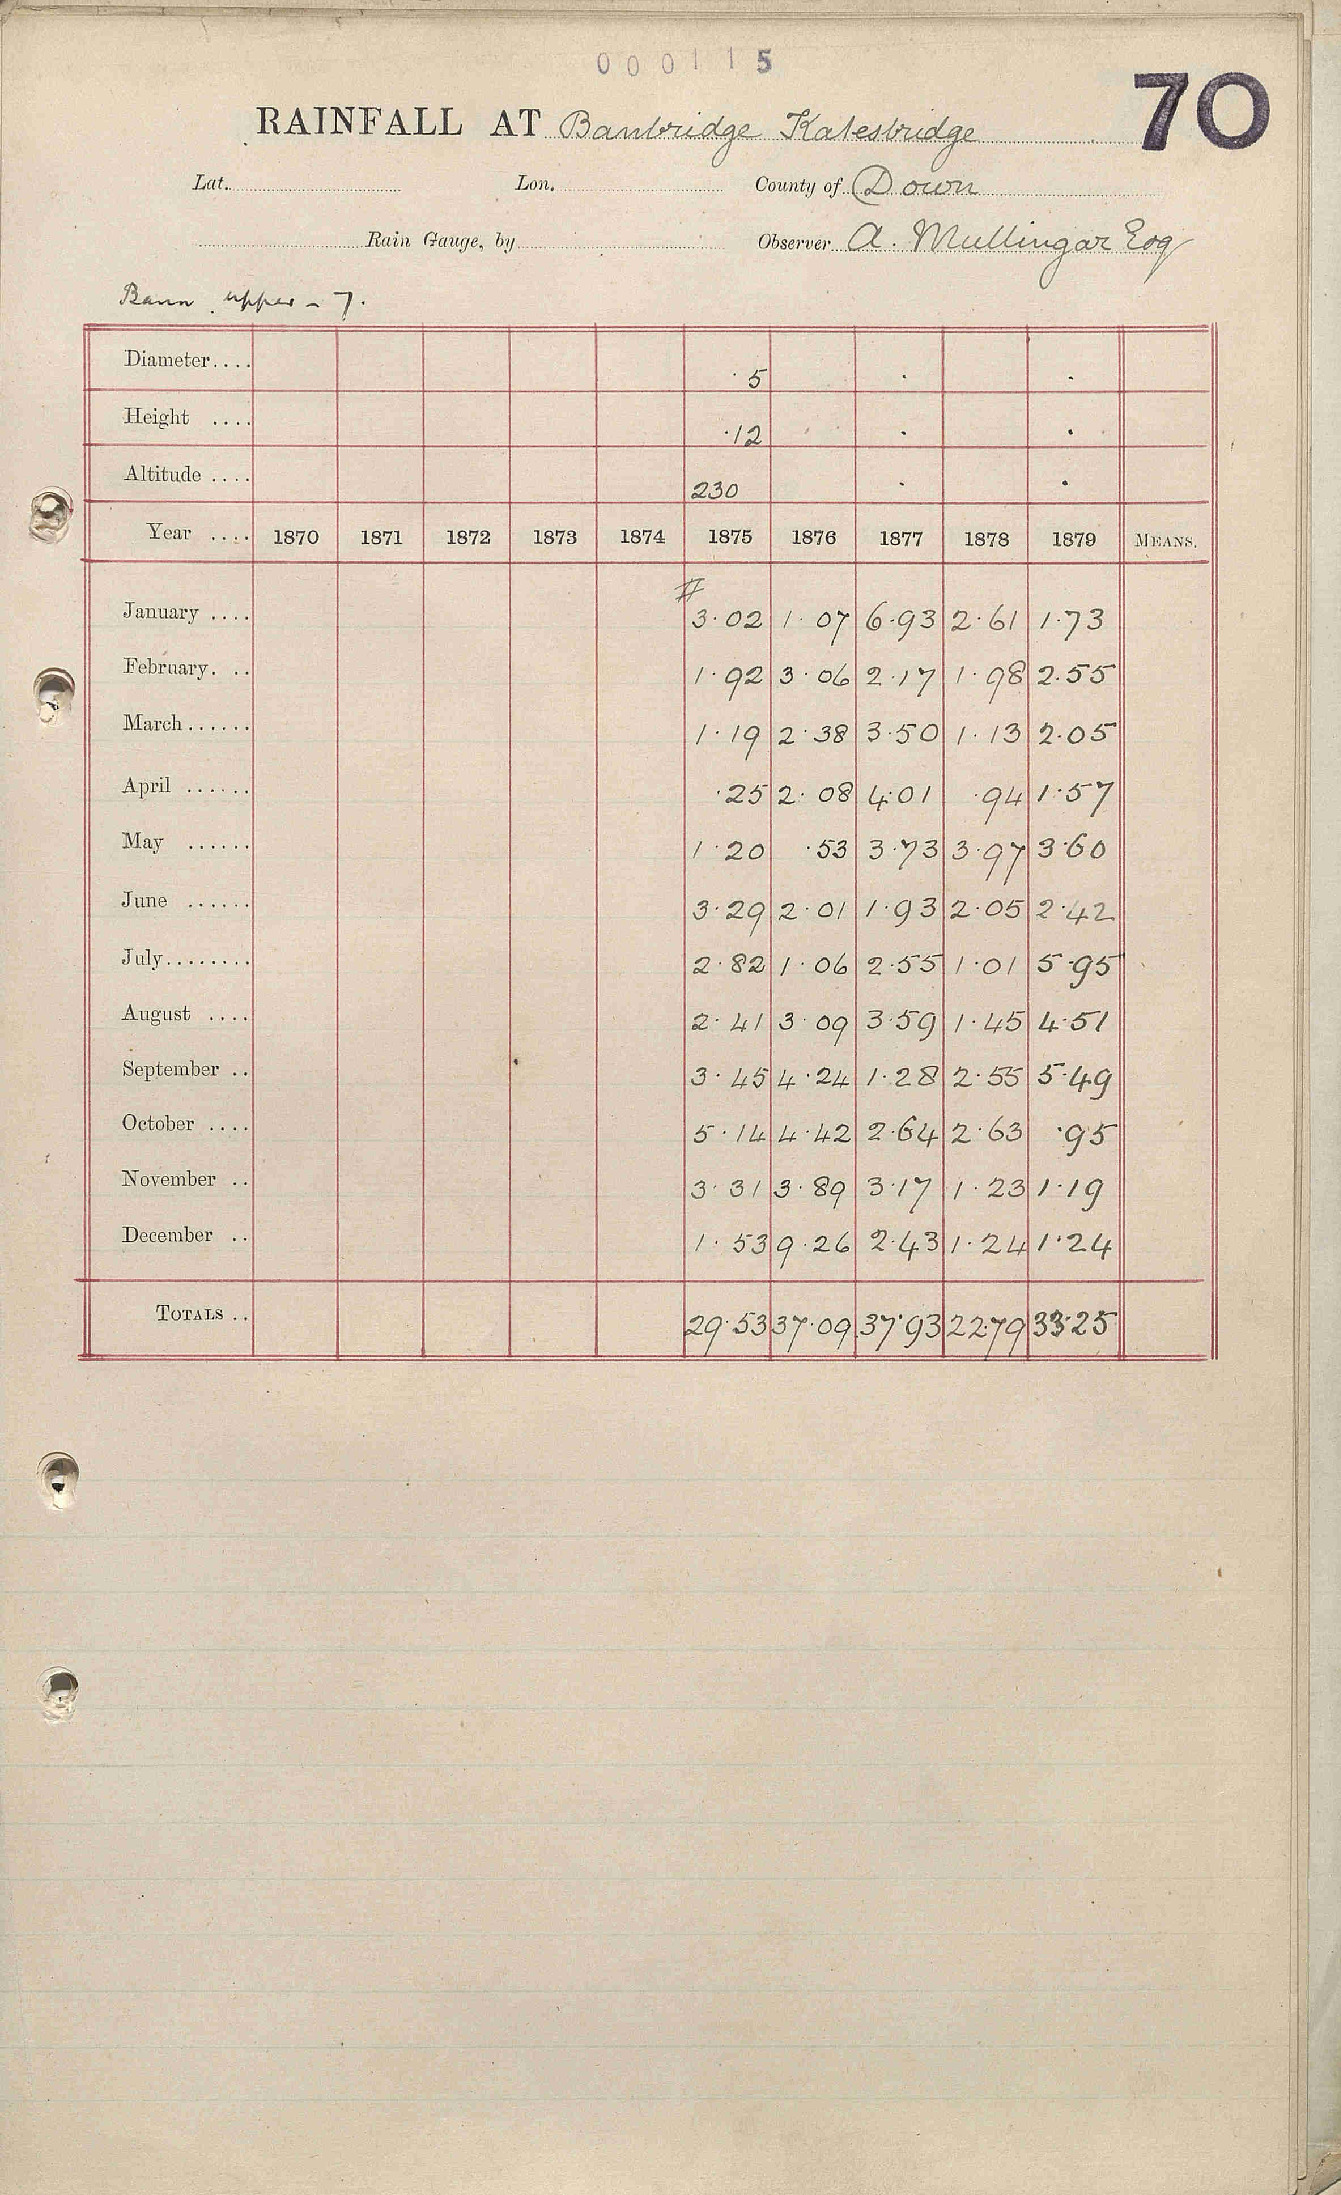 000115
70
RAINFALL AT Banbridge Katesbridge
Lat. Lon. County of Down
Rain Gauge, by Observer A. Mullingar Esq
Bann upper - 7.
Diameter.... 5
Height .... .12
Altitude .... 230
Year .... 1870 1871 1872 1873 1874 1875 1876 1877 1878 1879 MEANS.
#
January .... 3.02 1.07 6.93 2.61 1.73
February. .. 1.92 3.06 2.17 1.98 2.55
March...... 1.19 2.38 3.50 1.13 2.05
April ...... .25 2.08 4.01 .94 1.57
May ...... 1.20 .53 3.73 3.97 3.60
June ...... 3.29 2.01 1.93 2.05 2.42
July........ 2.82 1.06 2.55 1.01 5.95
August .... 2.41 3.09 3.59 1.45 4.51
September .. 3.45 4.24 1.28 2.55 5.49
October .... 5.14 4.42 2.64 2.63 .95
November .. 3.31 3.89 3.17 1.23 1.19
December .. 1.53 9.26 2.43 1.24 1.24
TOTALS .. 29.53 37.09 37.93 22.79 33.25